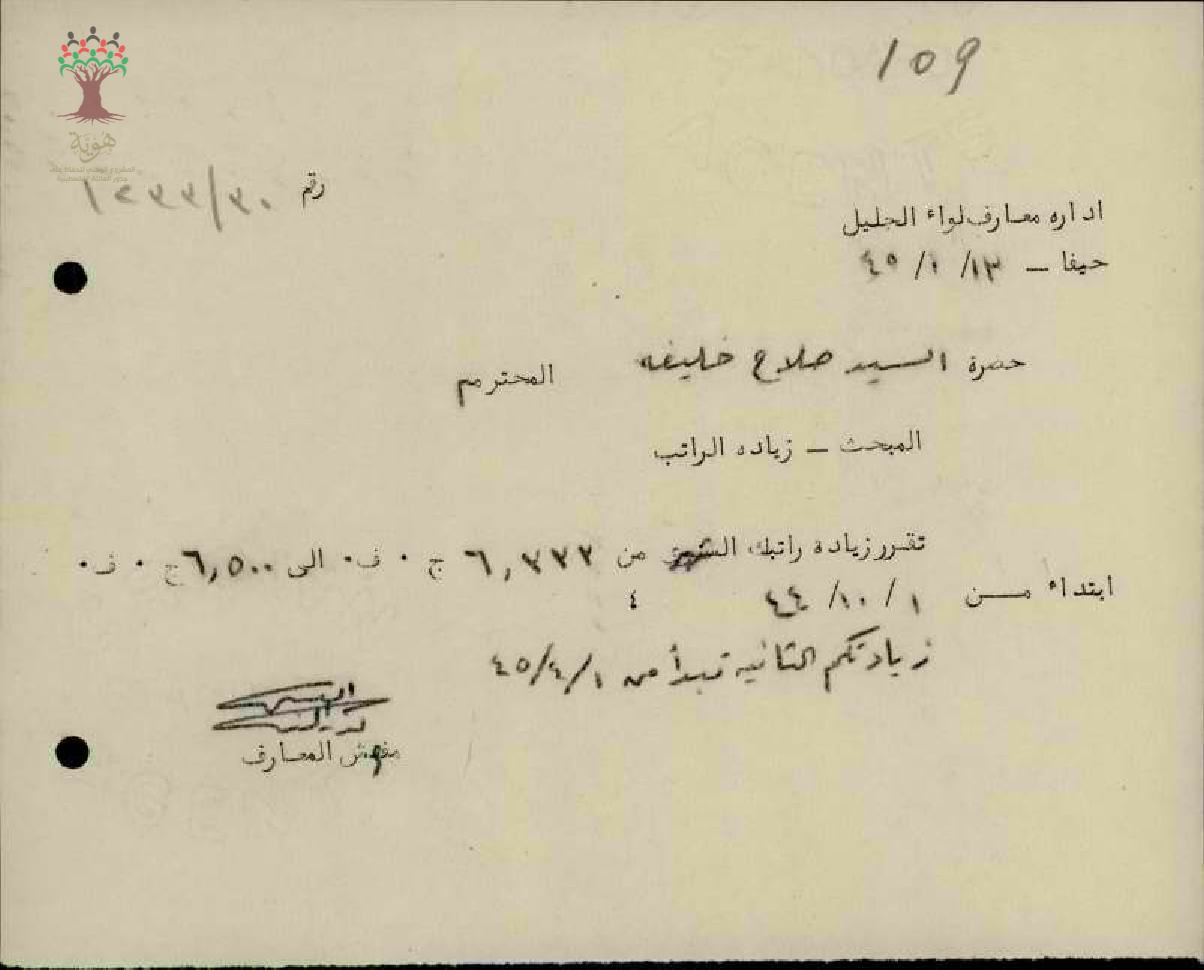 109
رقم ١٢٣٣/٣٠
اداره معارف لواء الجليل
حيفا – ١٣/ ١/ ٤٥
حضرة السيد صلاح خليفه المحترم
المبحث – زياده الراتب
تقرر زيادة راتبك الشهري من ٦,٣٣٣ ج ٠ ف٠ الى ٦,٥٠٠ ج ٠ ف٠
ابتداء من ١ /١٠/ ٤٤
٤
زيادتكم الثانيه تبدأ من ٤٥/٤/١
مفتش المعارف
هوية